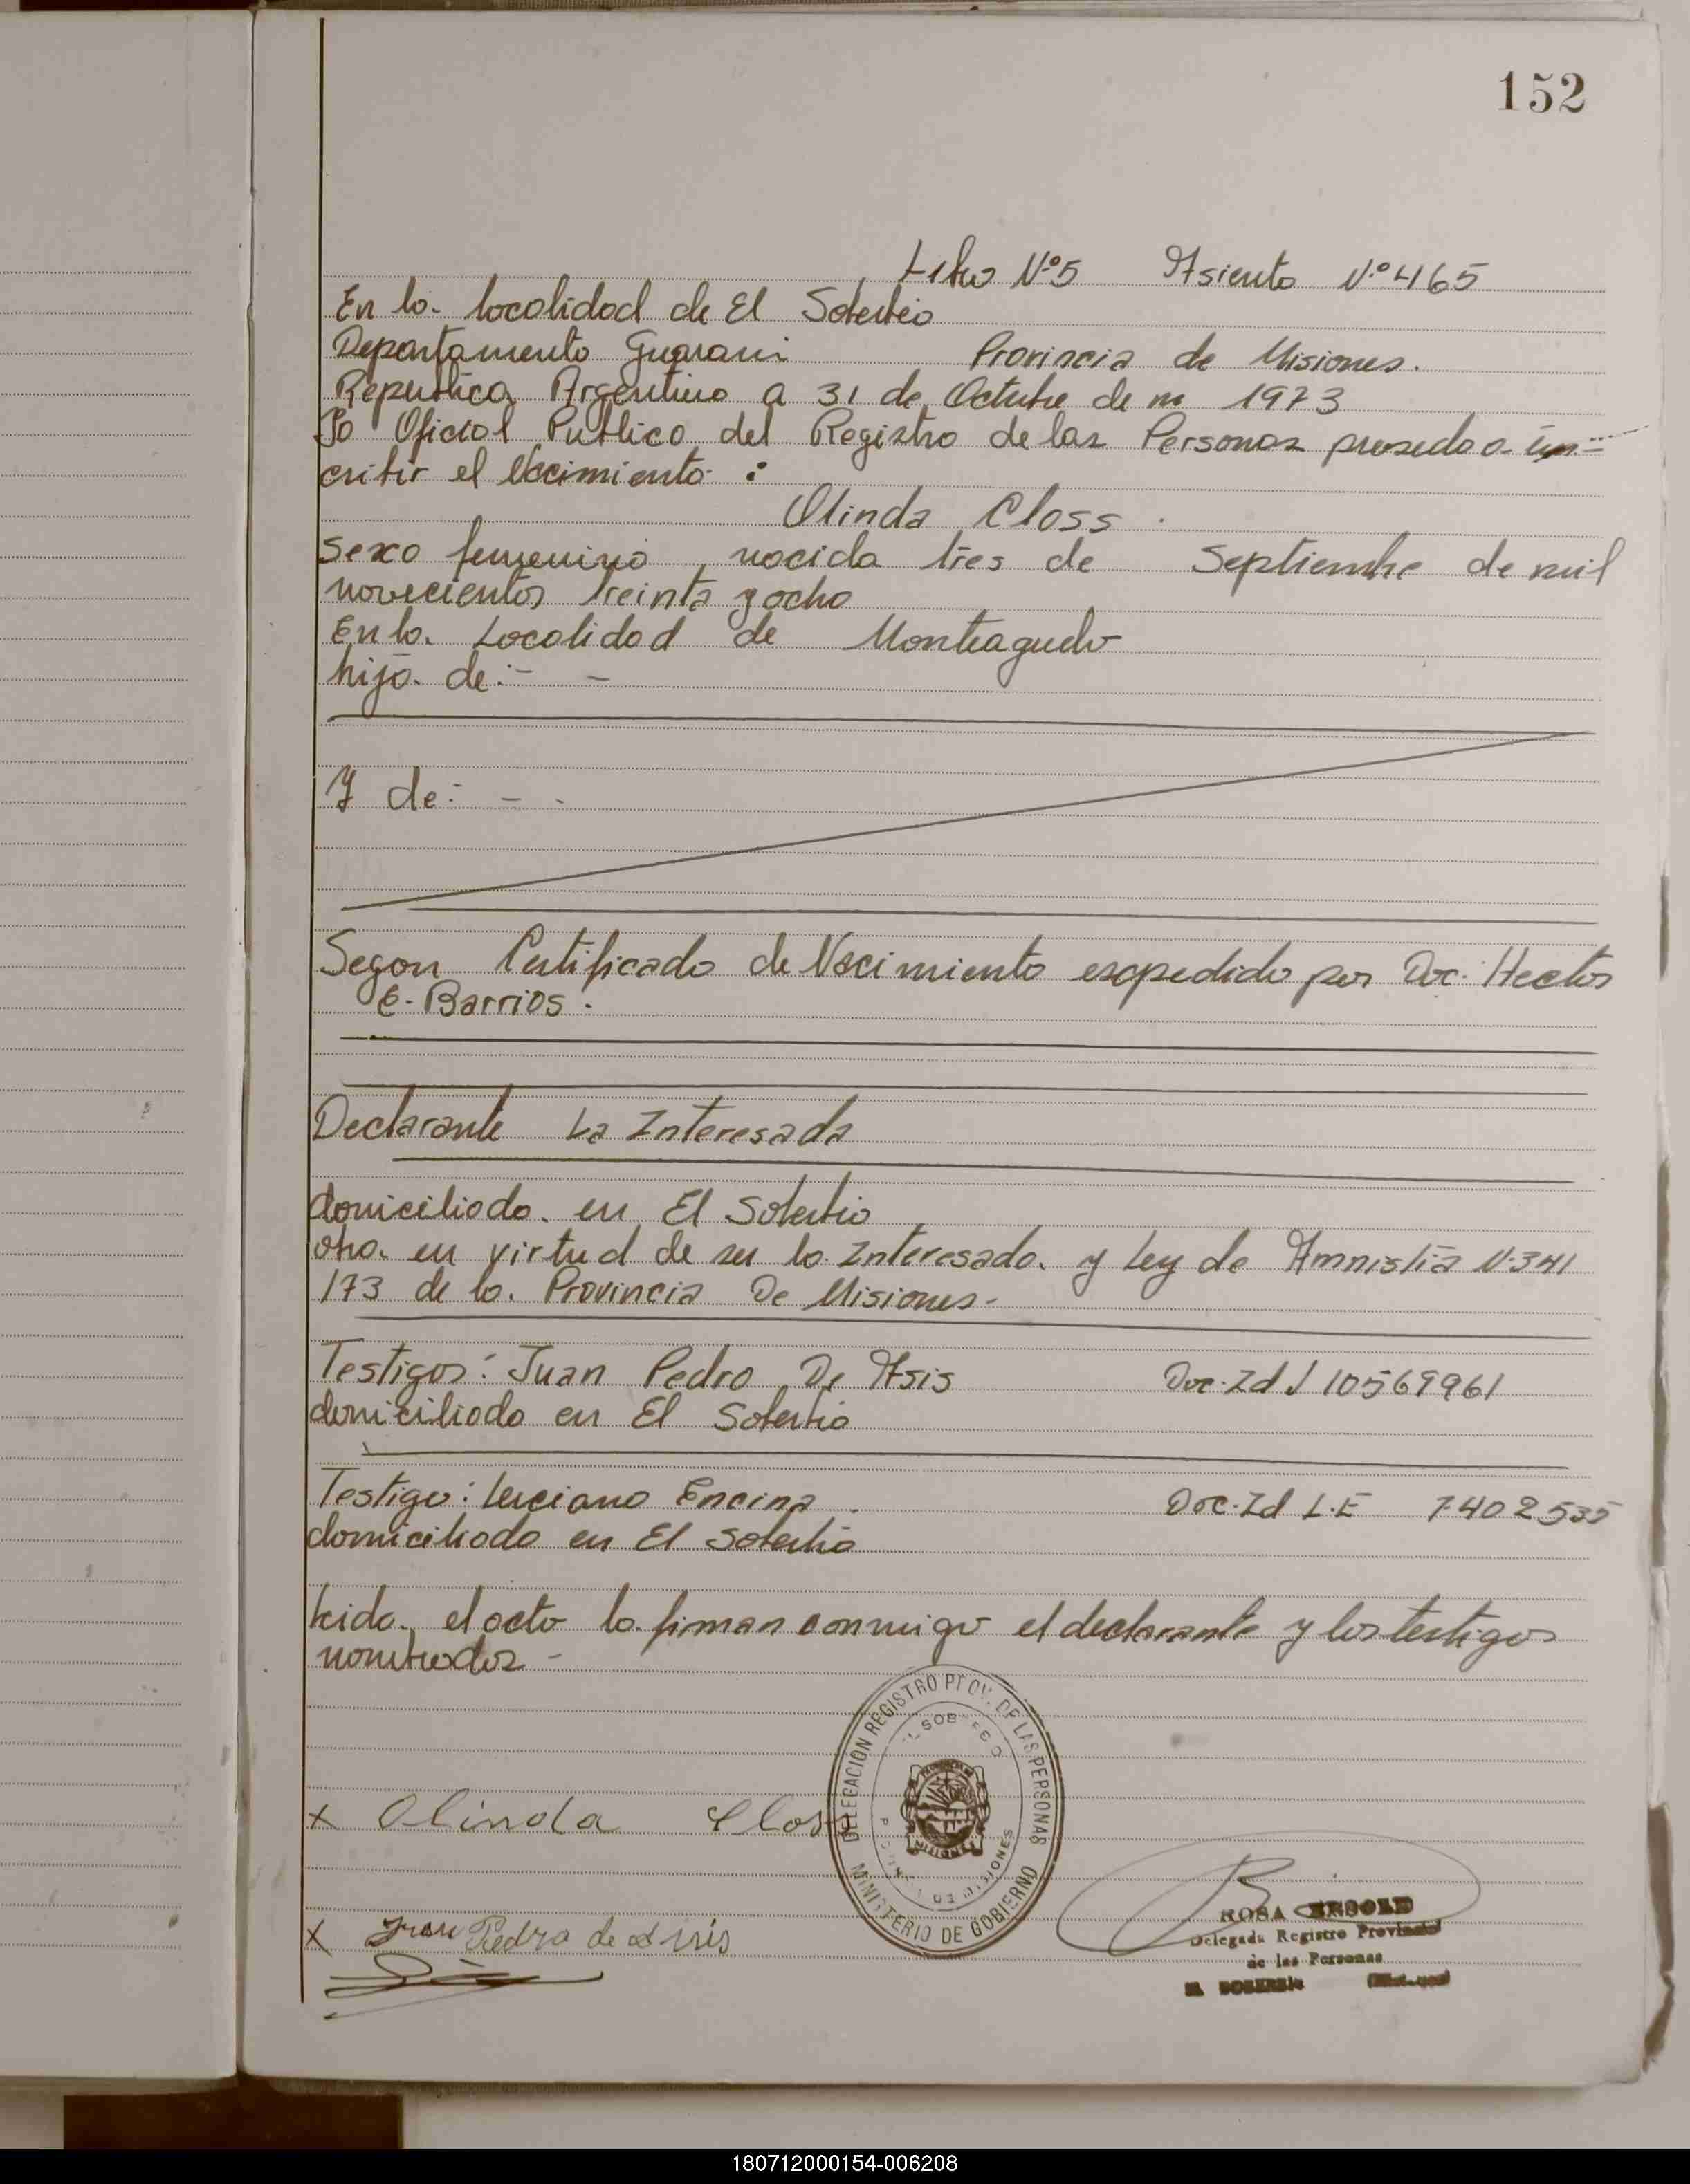 152
Libro Nº5 Asiento Nº 465
En la localidad de El Soberbio
Departamento Guarani Provincia de Misiones.
Republica Argentina a 31 de Octubre de m 1973
Yo Oficial Publico del Registro de las Personas prosedo a ins-
cribir el Nacimiento :
Olinda Closs
sexo femenino, nacida tres de Septiembre de mil
novecientos treinta y ocho
En la Localidad de Monteagudo
hija de:- -
Y de: - -
Segon Certificado de Nacimiento espedido por Doc. Hector
E. Barrios.
Declarante La Interesada
domiciliada en El Soberbio
obra en virtud de ser la Interesada y Ley de Amnistia N.341
173 de la Provincia De Misiones-
Testigos: Juan Pedro De Asis Doc. Id 10569961
domiciliado en El Soberbio
Testigo: Luciano Encina Doc. Id L.E 7.402535
domiciliado en El Soberbio
Leida el acto lo firman conmigo el declarante y los testigos
nombrados -
DELEGACION REGISTRO PROV. DE LAS PERSONAS
MINISTERIO DE GOBIERNO
MISIONES
x Olinda Closs
x Juan Pedro de Asis
ROSA
Delegada Registro Provincial
de las Personas
EL SOBERBIO (Misiones)
180712000154-006208